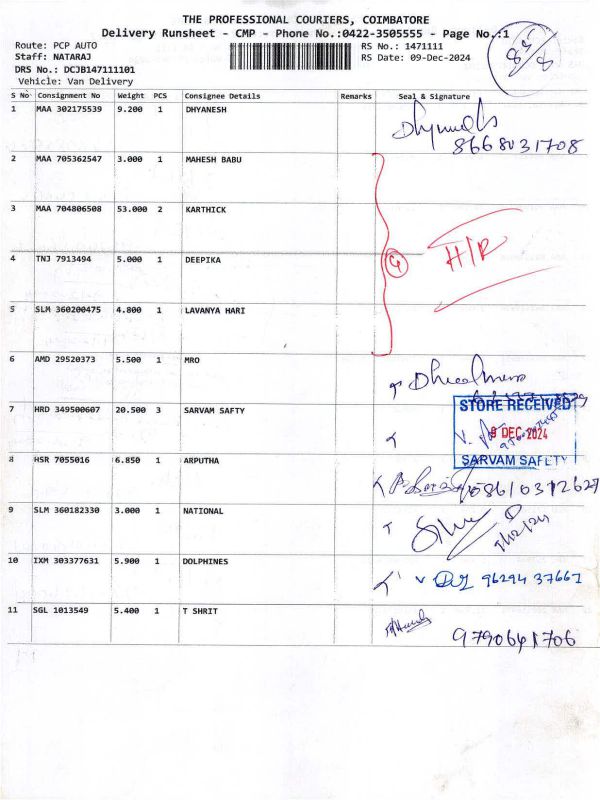 THE PROFESSIONAL COURIERS, COIMBATORE
Delivery Runsheet - CMP - Phone No.:0422-3505555 - Page No.:1
Route: PCP AUTO
Staff: NATARAJ
DRS No.: DCJB147111101
Vehicle: Van Delivery
RS No.: 1471111
RS Date: 09-Dec-2024
S No Consignment No Weight PCS Consignee Details Remarks Seal & Signature
1 MAA 302175539 9.200 1 DHYANESH
8668031708
2 MAA 705362547 3.000 1 MAHESH BABU
3 MAA 704806508 53.000 2 KARTHICK
H/R
4 TNJ 7913494 5.000 1 DEEPIKA
5 SLM 360200475 4.800 1 LAVANYA HARI
6 AMD 29520373 5.500 1 MRO
7 HRD 349500607 20.500 3 SARVAM SAFTY
STORE RECEIVED
9 DEC 2024
SARVAM SAFETY
8 HSR 7055016 6.850 1 ARPUTHA
9 SLM 360182330 3.000 1 NATIONAL
10 IXM 303377631 5.900 1 DOLPHINES
96294 37661
11 SGL 1013549 5.400 1 T SHRIT
9790641706